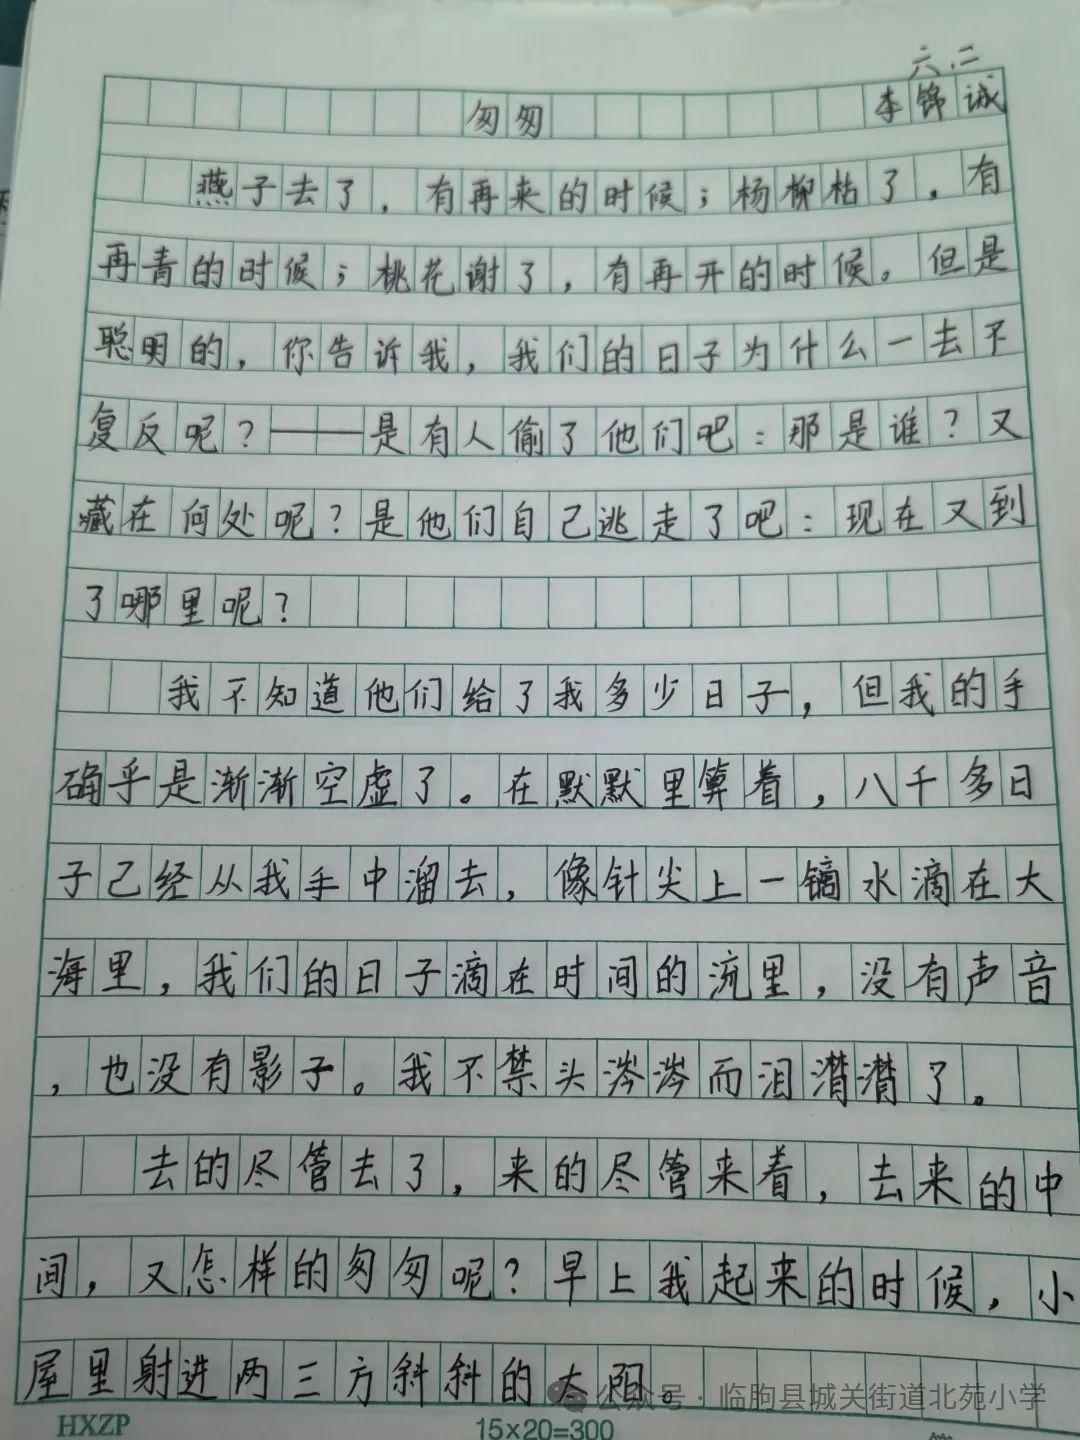 六.二
匆匆 李锦诚
燕子去了，有再来的时候；杨柳枯了，有
再青的时候；桃花谢了，有再开的时候。但是
聪明的，你告诉我，我们的日子为什么一去不
复反呢？——是有人偷了他们吧：那是谁？又
藏在何处呢？是他们自己逃走了吧：现在又到
了哪里呢？
我不知道他们给了我多少日子，但我的手
确乎是渐渐空虚了。在默默里算着，八千多日
子己经从我手中溜去，像针尖上一镝水滴在大
海里，我们的日子滴在时间的流里，没有声音
，也没有影子。我不禁头涔涔而泪潸潸了。
去的尽管去了，来的尽管来着，去来的中
间，又怎样的匆匆呢？早上我起来的时候，小
屋里射进两三方斜斜的太阳。
公众号·临朐县城关街道北苑小学
HXZP 15×20=300